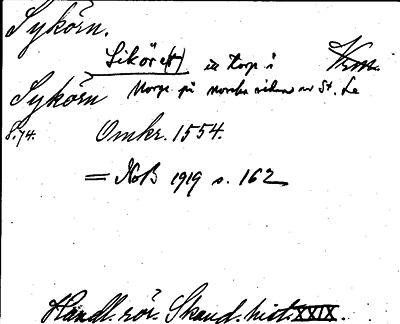 Sykörn.
Siköre(t) är torp i Vrm.
Sykörn Norge på norska sidan av St. Le
S. 74. Omkr. 1554.
= NoB 1919 s. 162
Handl. rör. Skand. hist. XXIX.